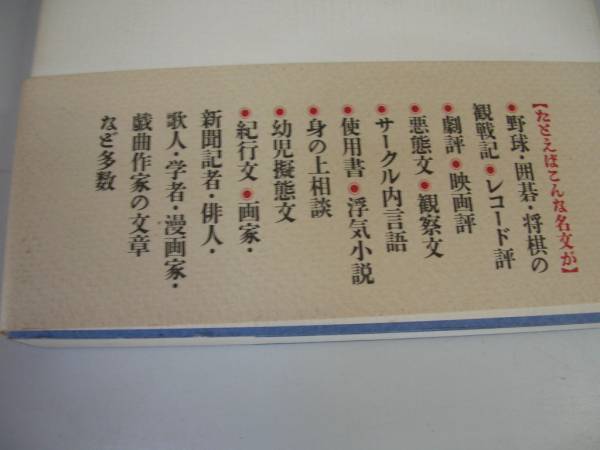 【たとえばこんな名文が】
●野球・囲碁・将棋の
観戦記●レコード評
●劇評●映画評
●悪態文●観察文
●サークル内言語
●使用書●浮気小説
●身の上相談
●幼児擬態文
●紀行文●画家・
新聞記者・俳人・
歌人・学者・漫画家・
戯曲作家の文章
など多数